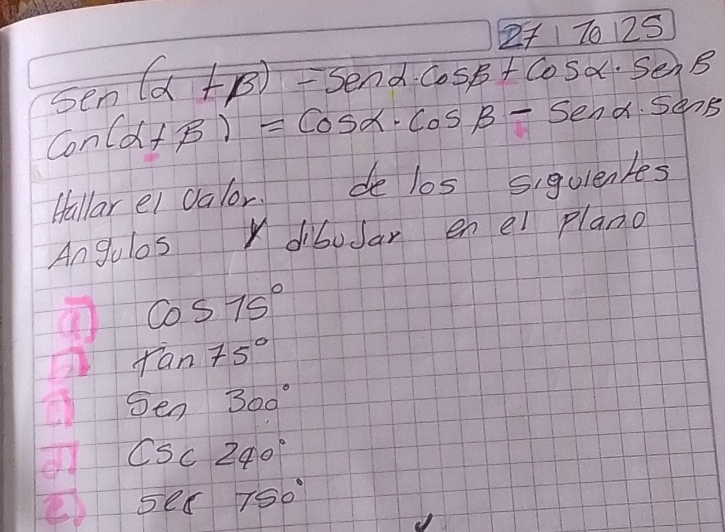 27 10 25
Sen (α + β) = Sen α · Cos β + Cos α · Sen B
Con (α + β) = Cos α · Cos β - Sen α · Sen B
Hallar el valor. de los siguientes
Angulos y dibujar en el plano
Cos 75°
Tan 75°
Sen 300°
Csc 240°
Sec 150°